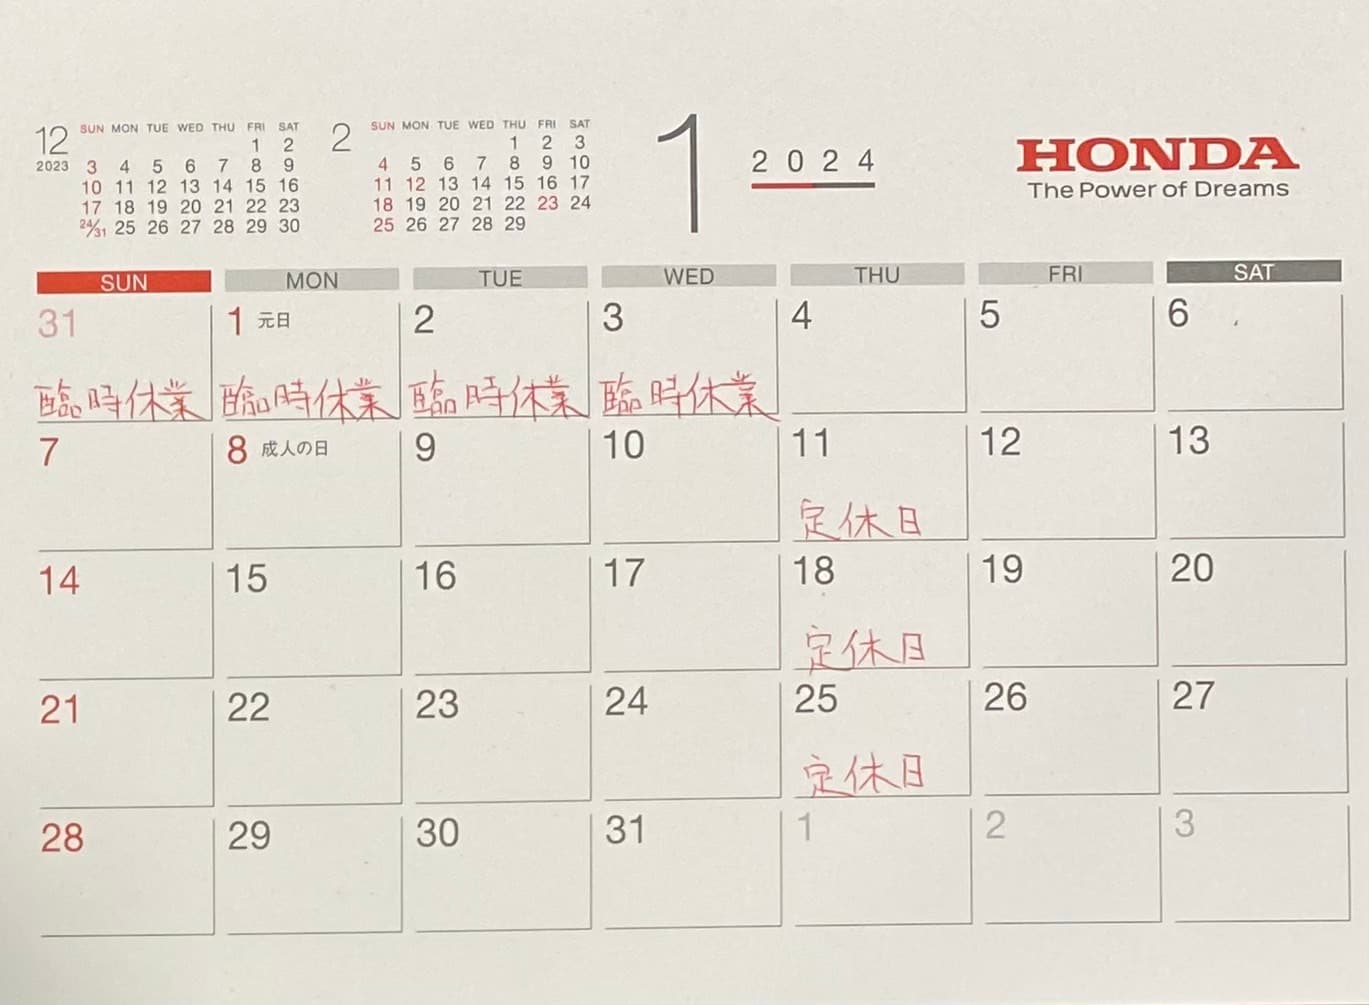 12
2023
SUN MON TUE WED THU FRI SAT
1 2
3 4 5 6 7 8 9
10 11 12 13 14 15 16
17 18 19 20 21 22 23
24/31 25 26 27 28 29 30
2
SUN MON TUE WED THU FRI SAT
1 2 3
4 5 6 7 8 9 10
11 12 13 14 15 16 17
18 19 20 21 22 23 24
25 26 27 28 29
1
2024
HONDA
The Power of Dreams
SUN MON TUE WED THU FRI SAT
31 1 元日 2 3 4 5 6
臨時休業 臨時休業 臨時休業 臨時休業
7 8 成人の日 9 10 11 12 13
定休日
14 15 16 17 18 19 20
定休日
21 22 23 24 25 26 27
定休日
28 29 30 31 1 2 3